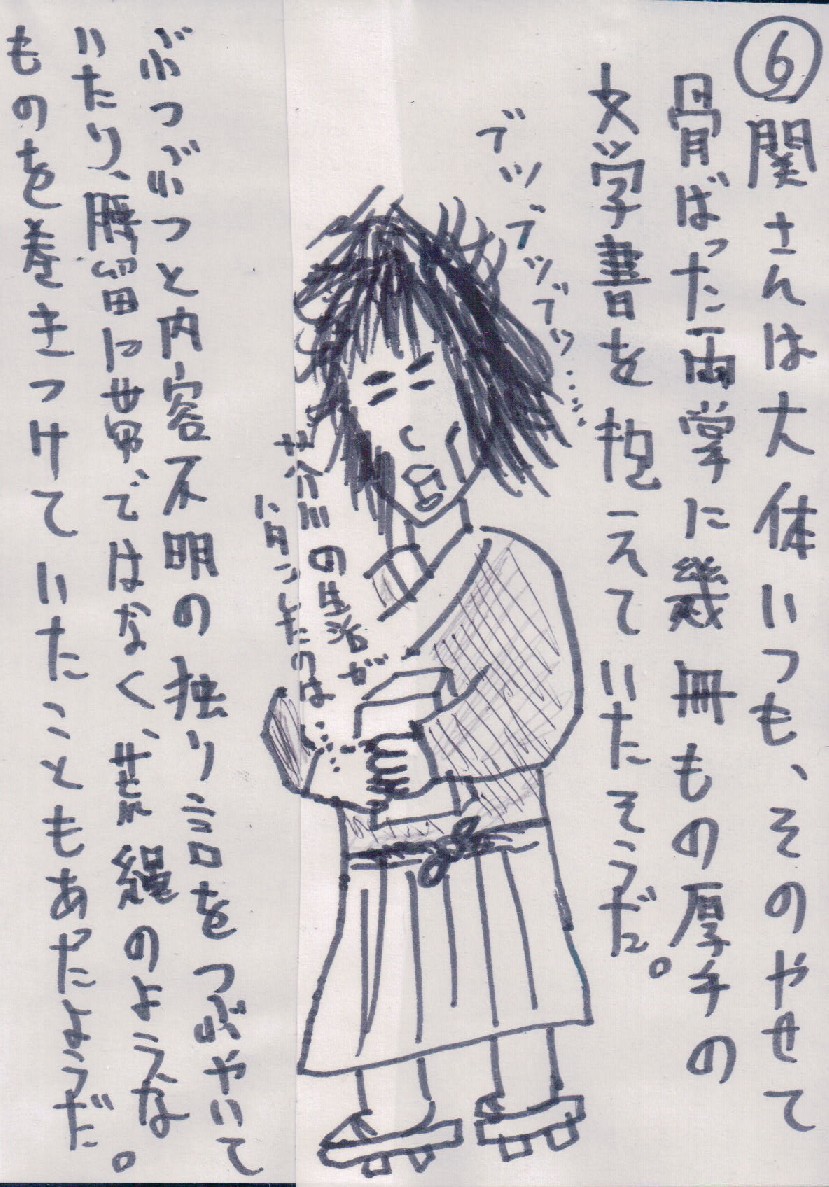 ⑥関さんは大体いつも、そのやせて
骨ばった両掌に幾冊もの厚手の
文学書を抱えていたそうだ。
ブツブツブツ……
芥川の生活が
ハタンしたのは……
ぶつぶつと内容不明の独り言をつぶやいて
いたり、腰留に ではなく、荒縄のような
ものを巻きつけていたこともあったようだ。